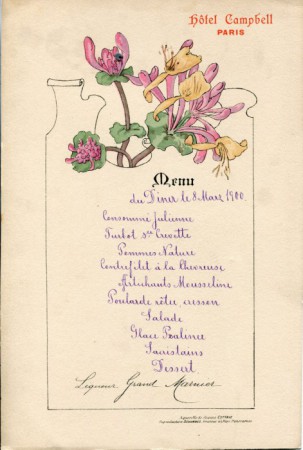 Hôtel Campbell
PARIS
Menu
du Dîner le 8 Mars 1900.
Consommé Julienne
Turbot sce Crevette
Pommes Nature
Contrefilet à la Chevreuse
Artichauts Mousseline
Poularde rôtie, cresson
Salade
Glace Pralinée
Parisiens
Dessert
Liqueur Grand Marnier